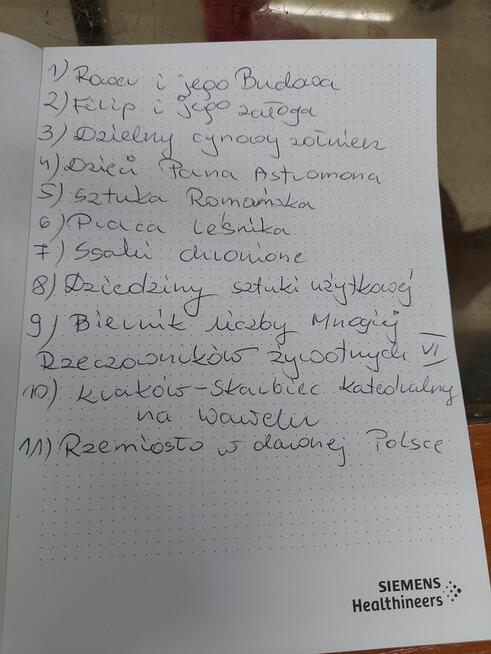 1) Rower i jego Budowa
2) Filip i jego załoga
3) Dzielny cynowy żołnierz
4) Dzień Pana Astronoma
5) Sztuka Romańska
6) Praca leśnika
7) Ssaki chronione
8) Dziedziny sztuki użytkowej
9) Biernik liczby Mnogiej
Rzeczowników żywotnych VI
10) Kraków – Skarbiec katedralny
na Wawelu
11) Rzemiosło w dawnej Polsce
SIEMENS
Healthineers